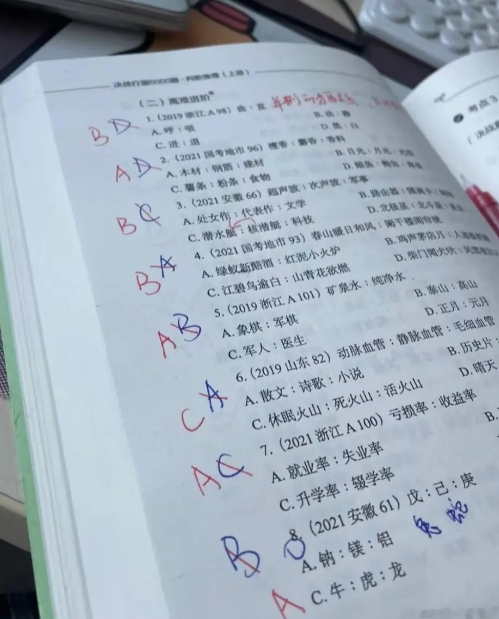 决战行测5000题·判断推理（上册）
（二）高难进阶
B D 1.（2019 浙江 A 98）曲：直
A. 呼：吸 B. 动：静
C. 进：退 D. 黑：白
A D 2.（2021 国考地市 96）檀香：麝香：香料
A. 木材：钢筋：建材 B. 日光：月光：
C. 薯条：粉条：食物
B C 3.（2021 安徽 66）超声波：次声波：军事
A. 处女作：代表作：文学
C. 潜水艇：核潜艇：科技
B A 4.（2021 国考地市 93）春山暖日和风：阑干楼阁帘栊
A. 绿蚁新醅酒：红泥小火炉 B. 鸡声茅店月：
C. 江碧鸟逾白：山青花欲燃 D. 柴门闻犬吠：
A B 5.（2019 浙江 A 101）矿泉水：纯净水
A. 象棋：军棋 B. 泰山：高山
C. 军人：医生 D. 正月：元月
C A 6.（2019 山东 82）动脉血管：静脉血管：毛细血管
A. 散文：诗歌：小说 B. 历史片：
C. 休眠火山：死火山：活火山 D. 晴天
A C 7.（2021 浙江 A 100）亏损率：收益率
A. 就业率：失业率 B.
C. 升学率：辍学率 D.
B 8.（2021 安徽 61）戊：己：庚
A. 钠：镁：铝
A C. 牛：虎：龙
考点